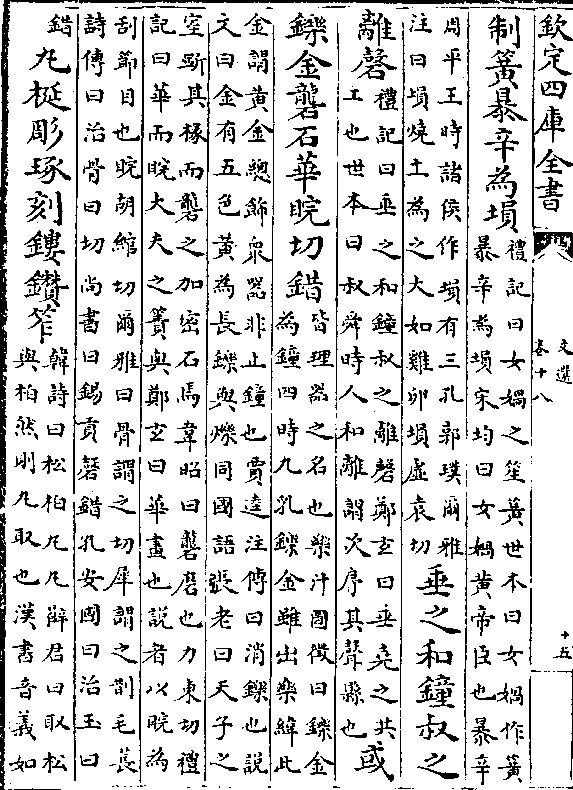 欽定四庫全書
文選
卷十八
十五
制簧暴辛為塤禮記曰女媧之笙簧世本曰女媧作簧
暴辛為塤宋均曰女媧黄帝臣也暴辛
周平王時諸侯作塤有三孔郭璞爾雅
注曰塤燒土為之大如雞卵塤虛袁切垂之和鐘叔之
離磬禮記曰垂之和鐘叔之離磬鄭玄曰垂堯之共
工也世本曰叔舜時人和離謂次序其聲縣也或
鑠金礱石華睆切錯皆理器之名也樂汁圖徵曰鑠金
為鐘四時九乳鑠金雖出樂緯此
金謂黄金總飾衆器非止鐘也賈逵注傳曰消鑠也説
文曰金有五色黄為長鑠與爍同國語張老曰天子之
室斲其椽而礱之加密石焉韋昭曰礱磨也力東切禮
記曰華而睆大夫之簀與鄭玄曰華畫也説者以睆為
刮節目也睆胡綰切爾雅曰骨謂之切犀謂之剒毛萇
詩傳曰治骨曰切尚書曰錫貢磬錯孔安國曰治玉曰
錯丸梴彫琢刻鏤鑽笮韓詩曰松柏丸丸薛君曰取松
與柏然則丸取也漢書音義如